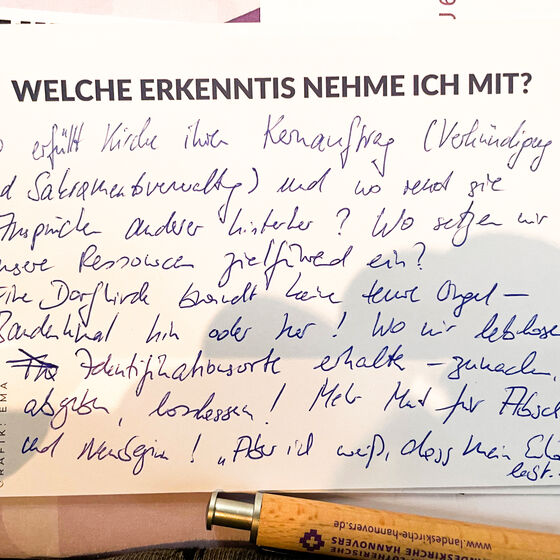 WELCHE ERKENNTIS NEHME ICH MIT?
erfüllt Kirche ihren Kernauftrag (Verkündigung
d Sakramentsverwaltg) und wo rennt sie
Ansprüchen anderer hinterher? Wo setzen wir
unsere Ressourcen zielführend ein?
Eine Dorfkirche braucht keine teure Orgel –
Baudenkmal hin oder her! Wo wir leblose
Identifikationsorte erhalten – zumachen,
abgeben, loslassen! Mehr Mut für Absch
und Neubeginn! „Aber ich weiß, dass mein Erlö
lebt.
GRAFIK: EMA
www.landeskirche-hannovers.de
LUTHERISCHE
LANDESKIRCHE HANNOVERS